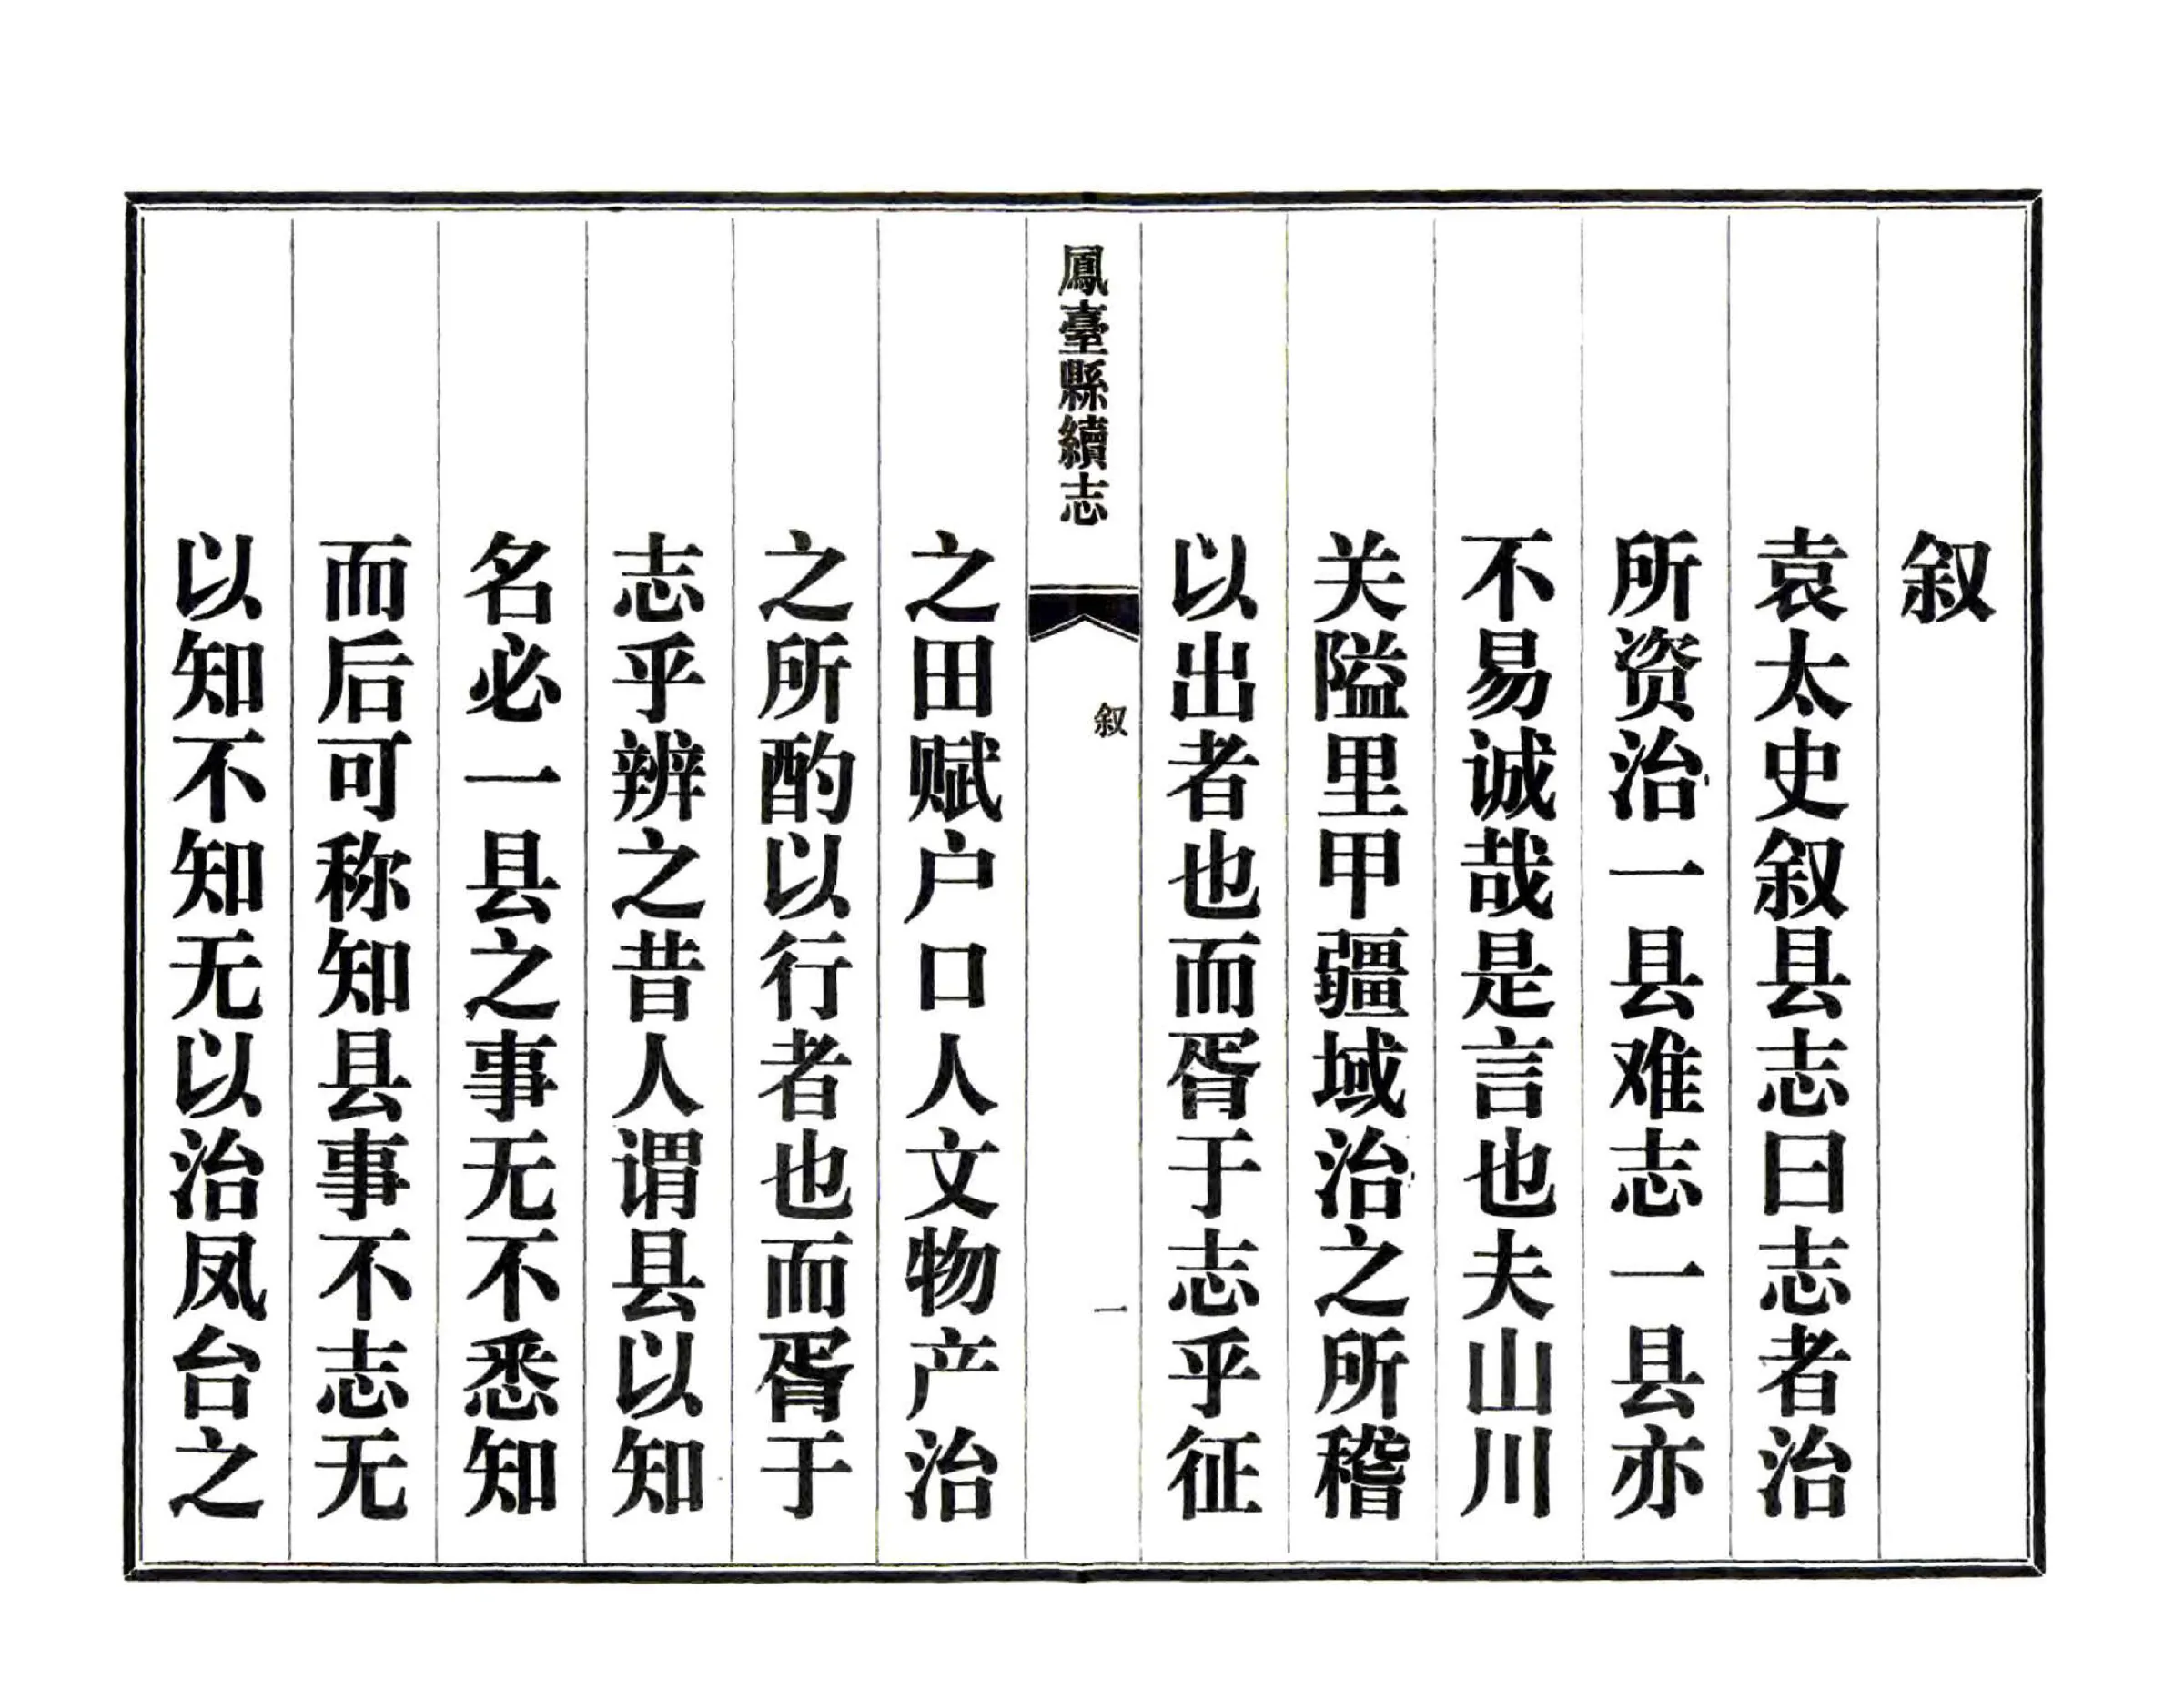 叙
袁太史叙县志曰志者治
所资治一县难志一县亦
不易诚哉是言也夫山川
关隘里甲疆域治之所稽
以出者也而胥于志乎征
鳳臺縣續志
叙
一
之田赋户口人文物产治
之所酌以行者也而胥于
志乎辨之昔人谓县以知
名必一县之事无不悉知
而后可称知县事不志无
以知不知无以治凤台之